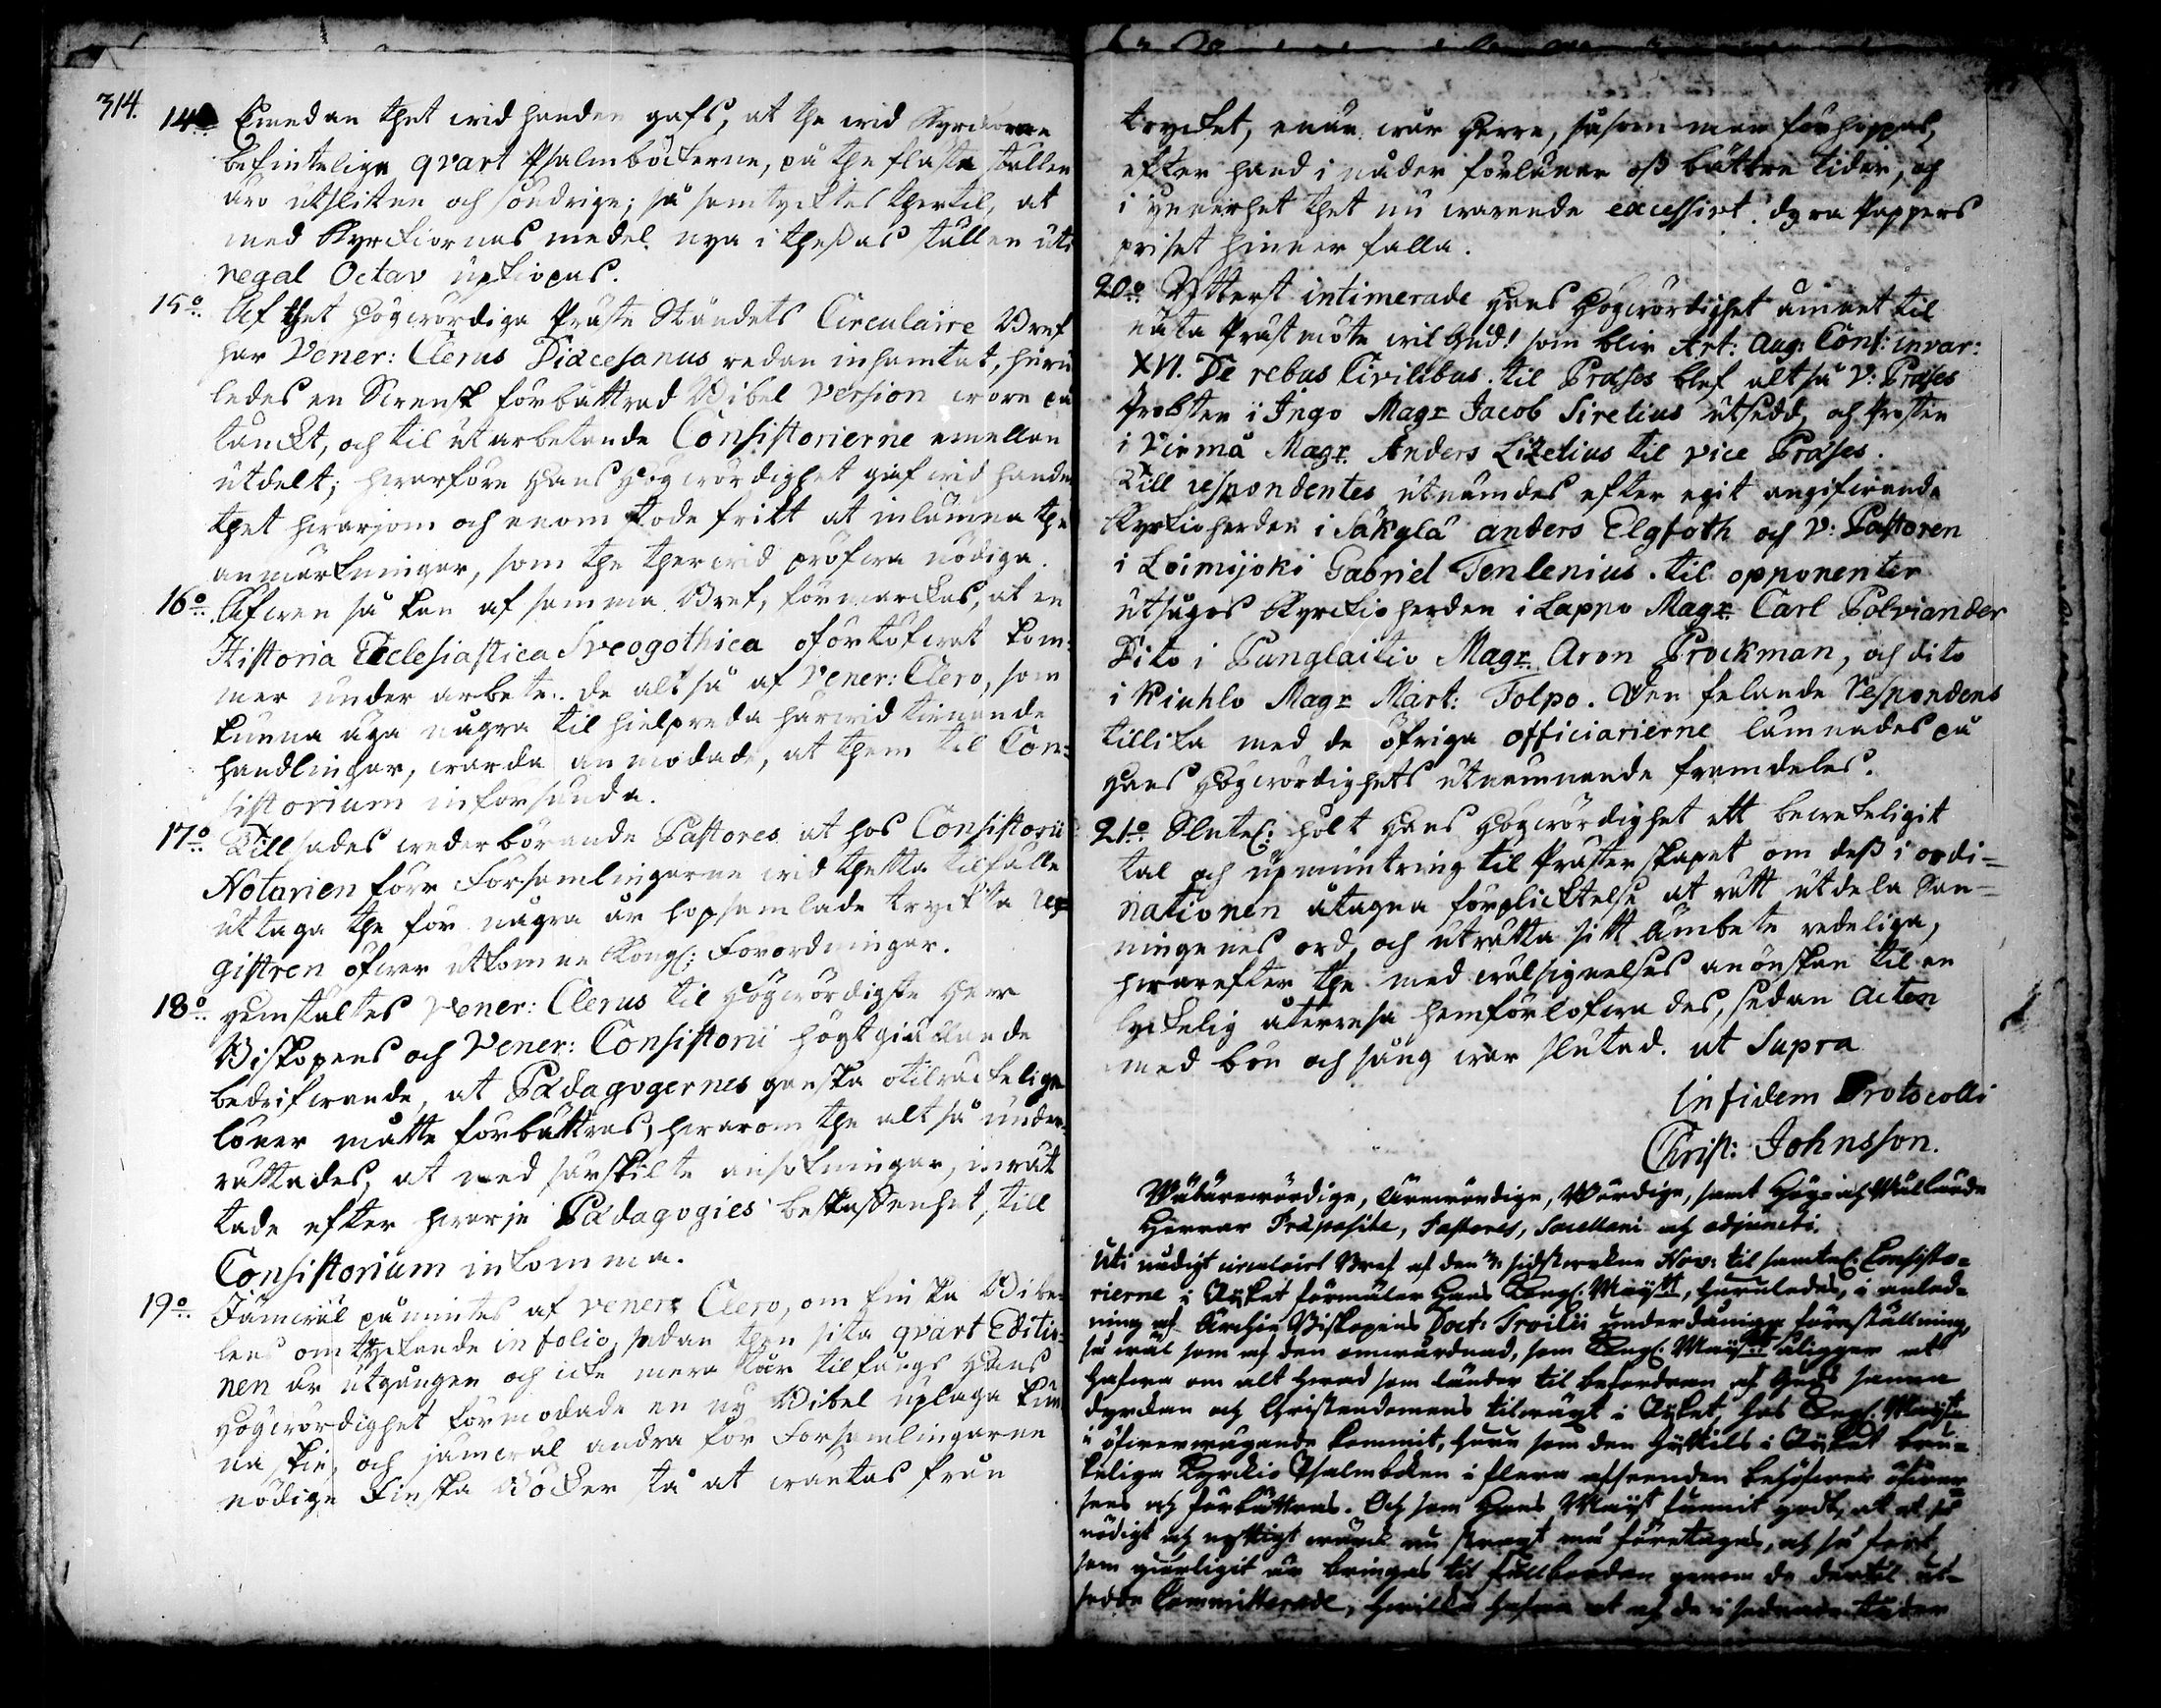 314.
14o Emedan thet wid handen gafs, at the wid Kyrckiorne
befintelige qvart Psalmböckerne, på the flästa ställen
äro utslitne och söndrige; så samtycktes thertil, at
med Kyrckiornas medel nya i theßas ställen uti
regal Octav upkiöpas.
15o Af thet Högwördiga Präste Ståndets Circulaire Bref
har Vener: Clerus Diæcesanus redan inhämtat, huru
ledes en Svensk förbättrad Bibel Version wore på
tänckt, och til utarbetande Consistorierne emellan
utdelt; hwarföre Hans Högwördighet gaf wid handen
thet hwarjom och enom stode fritt at inlämna the
anmärkningar, som the therwid pröfwa nödiga.
16o Äfwen så kan af samma Bref, förmärckas, at en
Historia Ecclesiastica Sveogothica oförtöfwat kom-
mer under arbete. De altså af Vener: Clero, som
kunna äga några til hielpreda härwid tienande
handlingar, warda anmodade, at them til Con-
sistorium insorsända.
17o Tillsades wederbörande Pastores at hos Consistorii
Notarien förr Församlingarne wid thetta tilfälle
uttaga the för några år hopsamlade tryckta re-
gistren öfwer utkomne Kongl: Förordningar.
18o Hemstältes Vener: Clerus til Högwördigste Herr
Biskopens och Vener: Consistorii högtgiällande
bedrifwande, at Pædagogernes ganska otilräckelige
löner måtte förbättras, hwarom the altså under-
rättades, at med särskilte ansökningar, inrät
tade efter hwarje Pædagogies beskaffenhet, till
Consistorium inkomma.
19o Jämwäl påmintes af vener: Clero, om finska Bibe-
lens omtryckande in folio, sedan then sista qvart Editio-
nen är utgången och icke mera står til fångs. Hans
Högwördighet förmodade en ny Bibel uplaga kun
na skie, och jämwäl andra för Församlingarne
nödige Finska Böcker stå at wäntas från
trycket, enär wår Herre, såsom man förhoppas,
efter hand i nåder förlänar oß bättre tider, och
i synnerhet thet nu warande excessivt dyra Pappers
priset hinner falla.
20o Ytterst intimerade Hans Högwördighet ämnet til
nästa Prästmöte wil Gud! som blir Art: Aug: Conf: invar:
XVI. De rebus Civilibus. til Præses blef altså V: Præses
Probsten i Ingo Magr Jacob Siretius utsedd, och Prosten
i Virmå Magr. Anders Lizelius til vice Præses.
Till respondentes utnämdes efter egit angifwande
Kyrkioherden i Säkylä anders Elgfoth och V: Pastoren
i Loimijoki Gabriel Tenlenius. til opponenter
utsågos Kyrckioherden i Lappo Magr. Carl Polviander
Dito i Pungalaitio Magr. Aron Prockman, och dito
i Kiuhlo Magr Mårt: Tolpo. Den felande Respondens
tillika med de öfriga officiarierne lämnades på
Hans Högwördighets utnämnande framdeles.
21o Slutel: hölt Hans Högwördighet ett beweckeligit
tal och upmuntring til Prästerskapet om deß i ordi-
nationen åtagna förplicktelse at rätt utdela San-
ningenes ord, och uträtta sitt Ämbete redeliga,
hwarefter the med wälsignelses anönskan til en
lyckelig återresa hemförlofwades, sedan Acten
med bön och sång war slutad. ut Supra
In fidem Protocolli
Christ: Johnsson.
Wälärewördige, Ärewördige, Wördige, samt Höga och Wällärde
Herrar Præposite, Pastores, Sacellani och adjuncti.
Uti nådigt circulairt Bref af den sidstwekne Nov: til samtel: Consisto-
rierne i Ryket förmäler Hans Kongl: Mayst:, huruledes, i anled-
ning af Ärchie Biskopens Doct: Troilii underdånige föreställning,
så wäl som af den omwårdnad, som Kongl: Mayst: åligger at
hafwa om alt hwad som länder til befordran af Guds sanna
dyrckan och Christendomens tilwäxt i Ryket, hos Kongl: Mayst:
i öfwerwägande kommit, huru som den hittils i Ryket bru-
kelige Kyrckio Psalmboken i flera afseenden behöfwer öfwer-
sees och förbättras. Och som Hans Mayst: funnit godt, at et så
nödigt och nyttigt wärck nu straxt må företagas, och så fort
som giörligit är bringas til fullbordan genom de dertil ut-
sedde Committerade, hwilka hafwa at af de i sednare tider